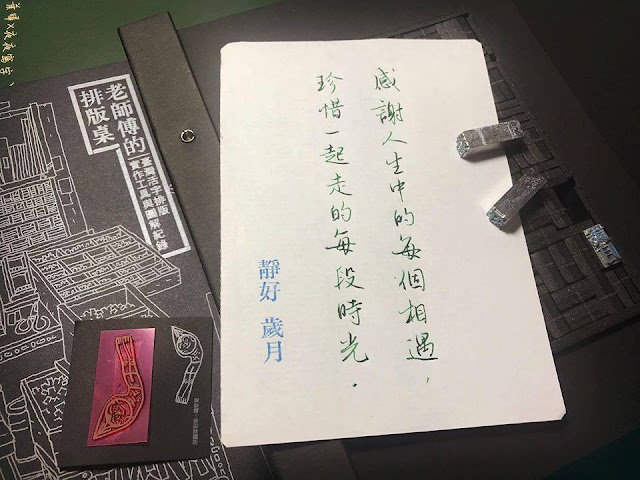 感謝人生中的每個相遇，
珍惜一起走的每段時光．
靜好 歲月
老師傅的
排版桌
臺灣活字排版
實作工具與圖解紀錄